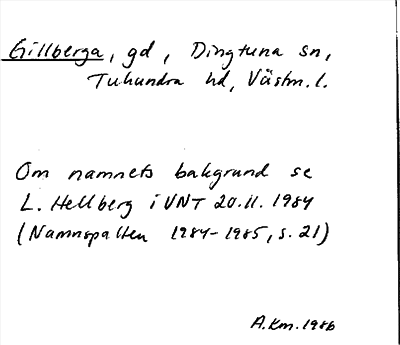 Gillberga, gd, Dingtuna sn,
Tuhundra hd, Västm. l.
Om namnets bakgrund se
L. Hellberg i VNT 20.11. 1984
(Namnspalten 1984-1985, s. 21)
A.Km. 1986